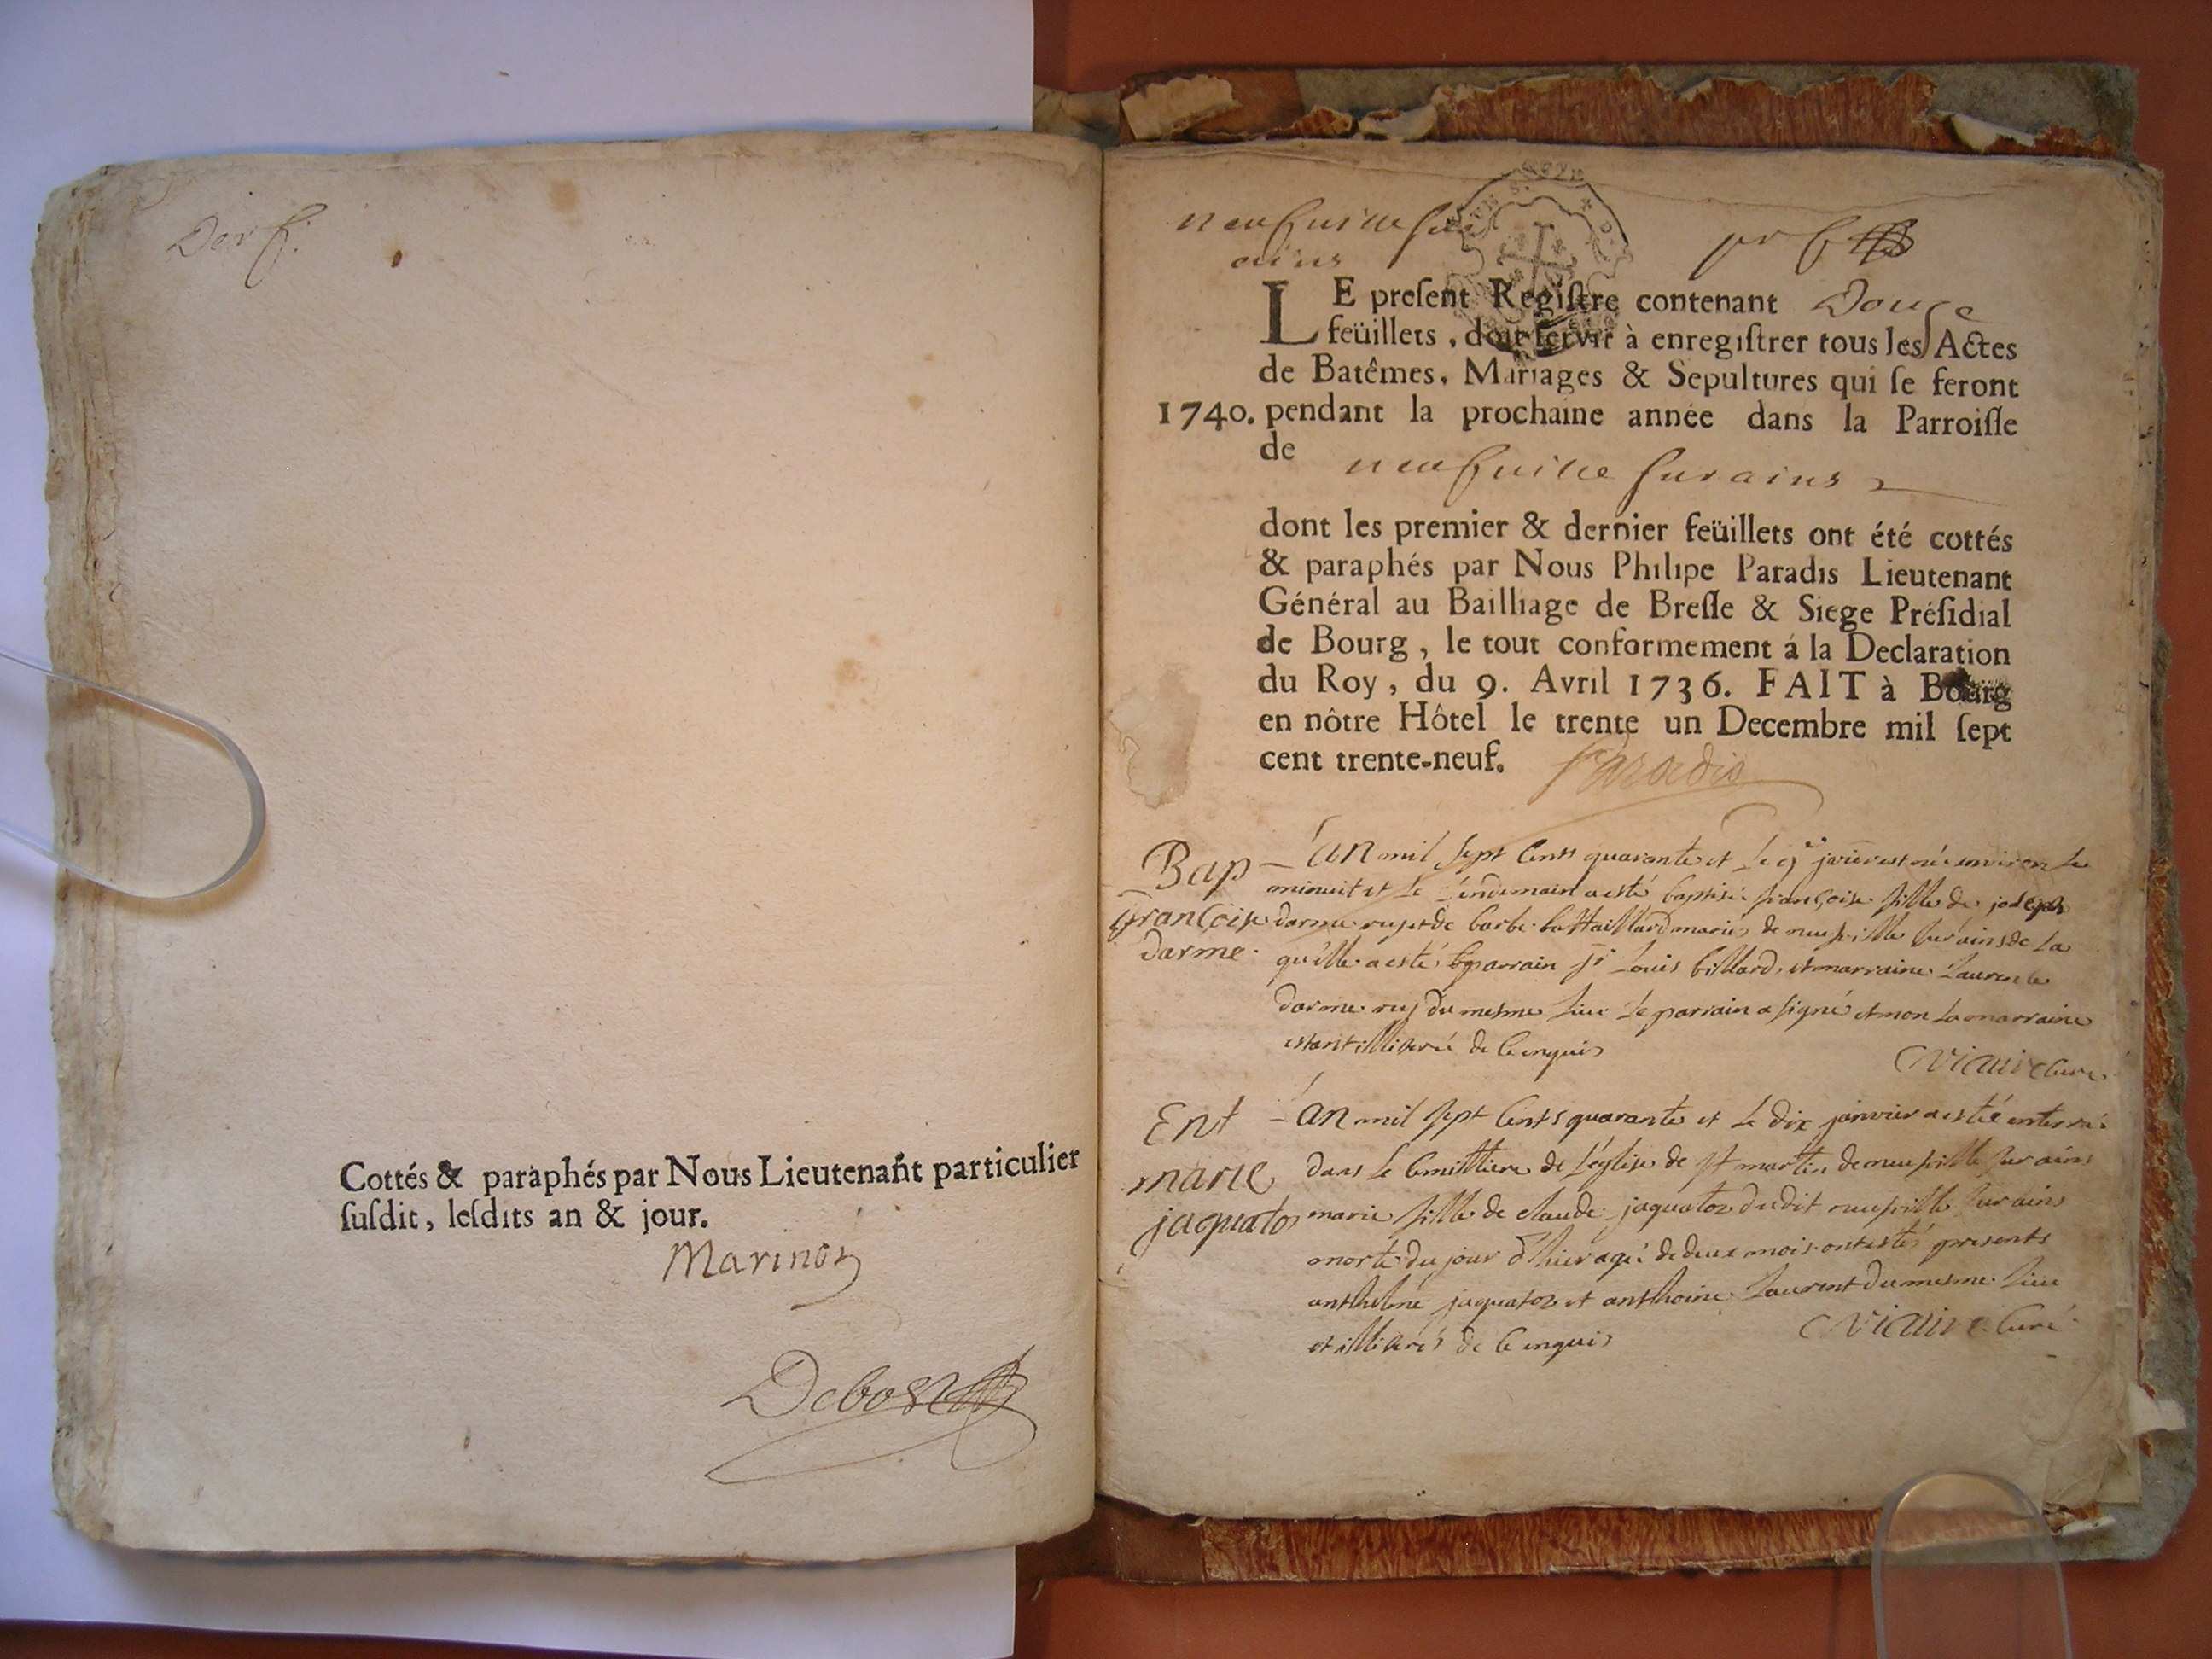 Der f.
Cottés & paraphés par Nous Lieutenant particulier
ſuſdit, leſdits an & jour.
Marinon
neufville ſur
ains
pr f
LE preſent Regiſtre contenant Douze
feüillets, doit ſervir à enregiſtrer tous les Actes
de Batêmes, Mariages & Sepultures qui ſe feront
1740. pendant la prochaine année dans la Parroiſſe
de neufville ſur ains
dont les premier & dernier feüillets ont été cottés
& paraphés par Nous Philipe Paradis Lieutenant
Général au Bailliage de Breſſe & Siege Préſidial
de Bourg, le tout conformement á la Declaration
du Roy, du 9. Avril 1736. FAIT à Bourg
en nôtre Hôtel le trente un Decembre mil ſept
cent trente-neuf. Paradis
Bap
françoise
darme
l'an mil sept cents quarante et le 9e janvier est née environ le
minuit et le lendemain a esté baptisée françoise fille de joseph
darme et de barbe mariés de neufville sur ains de la
qu'elle a esté parrain sr Louis billard, et marraine Laurence
darme du mesme lieu le parrain a signé et non la marraine
estant illiterée de ce enquis
Vicaire curé
Ent
marie
jaquato
l'an mil sept cents quarante et le dix janvier a esté enterrée
dans le cemittiere de l'église de st martin de neufville sur ains
marie fille de claude jaquato dudit neufville sur ains
morte du jour d'hier agée de deux mois ont esté presents
anthelme jaquato et anthoine Laurent du mesme lieu
et illiterés de ce enquis
Vicaire curé